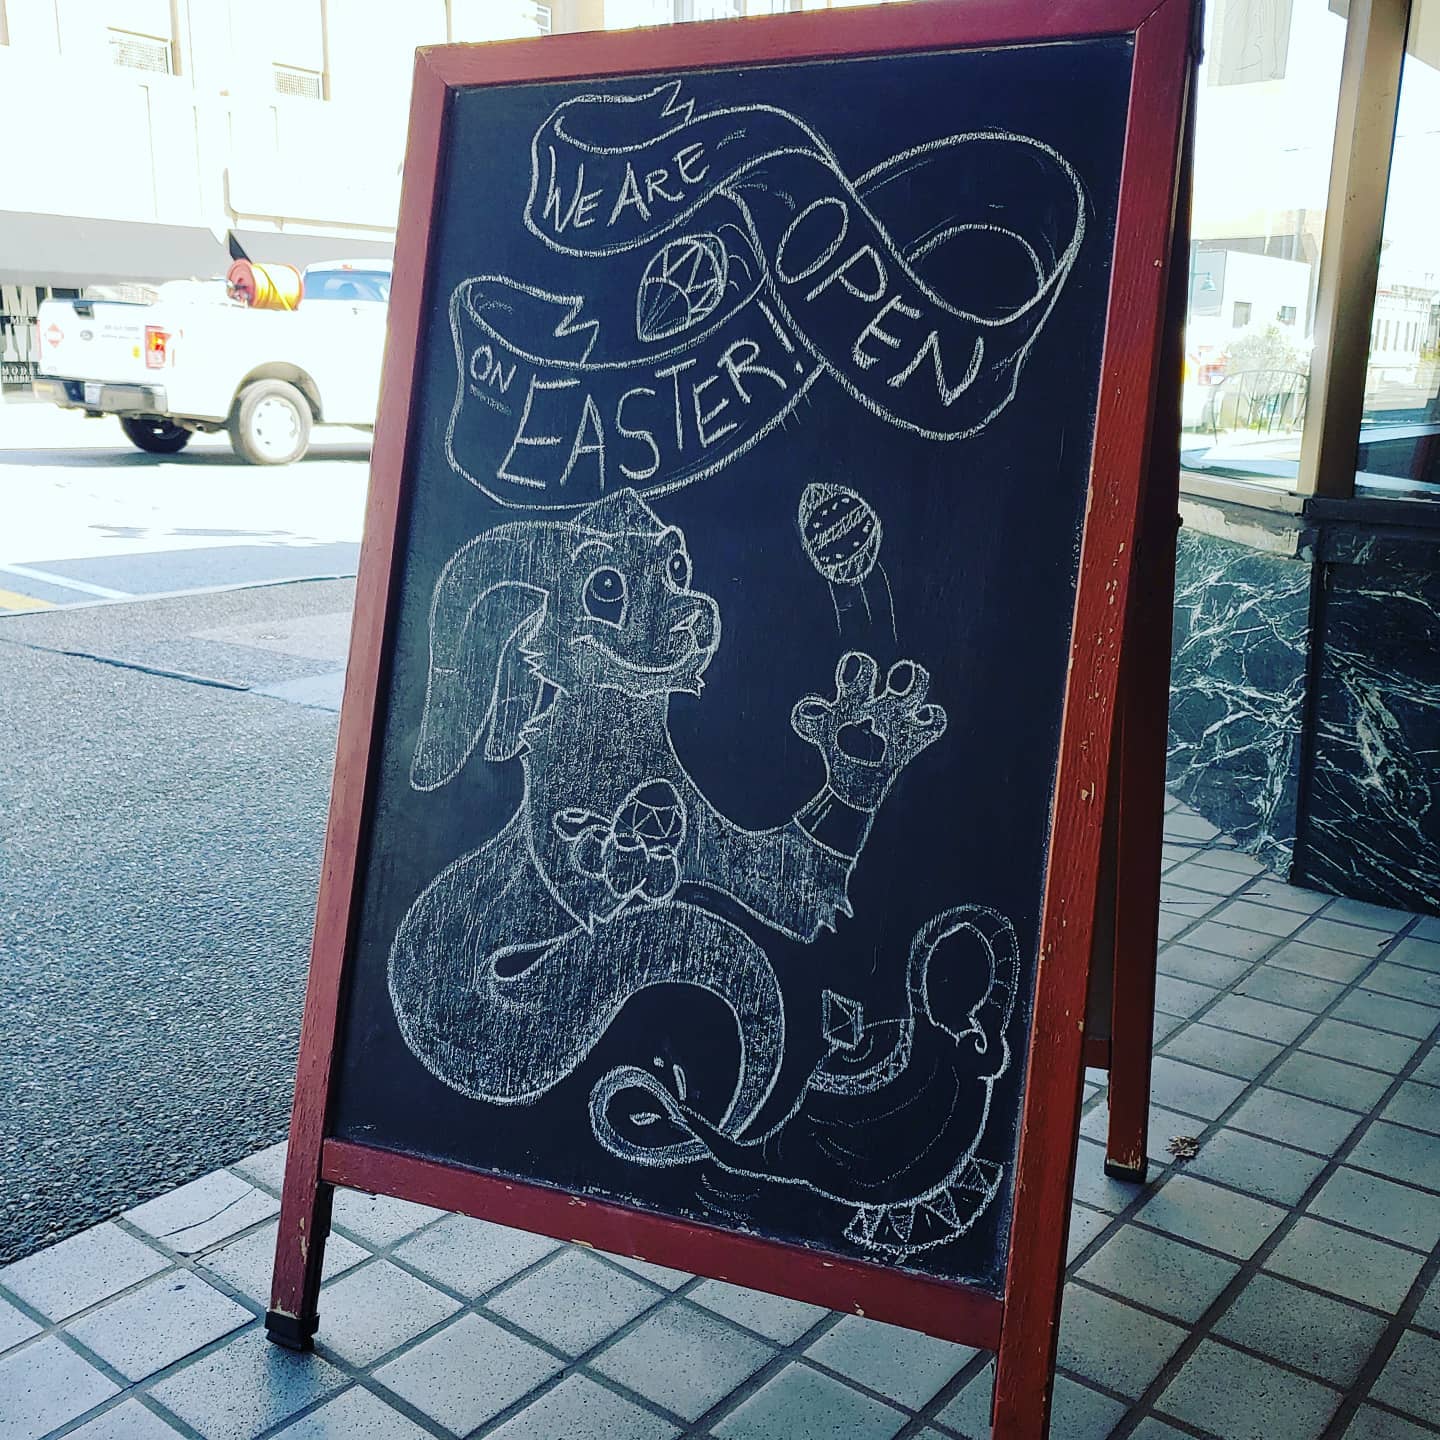 WE ARE
OPEN
ON EASTER!